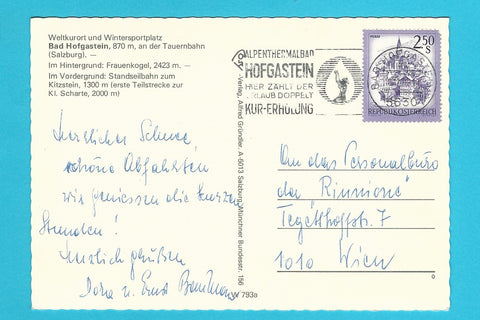 Weltkurort und Wintersportplatz
Bad Hofgastein, 870 m, an der Tauernbahn
(Salzburg). —
Im Hintergrund: Frauenkogel, 2423 m. —
Im Vordergrund: Standseilbahn zum
Kitzstein, 1300 m (erste Teilstrecke zur
Kl. Scharte, 2000 m)
ALPENTHERMALBAD
HOFGASTEIN
HIER ZÄHLT DER
URLAUB DOPPELT
KUR-ERHOLUNG
2.50
S
REPUBLIK ÖSTERREICH
Verlag Alfred Gründler, A-5013 Salzburg, Münchner Bundesstr. 156
W 793a
Herrlicher Schnee,
schöne Abfahrten
wir geniessen die kurzen
Stunden!
Herzlich grüßen
Dora u. Ernst
An das Personalbüro
der
Tegetthoffstr. 7
1010 Wien